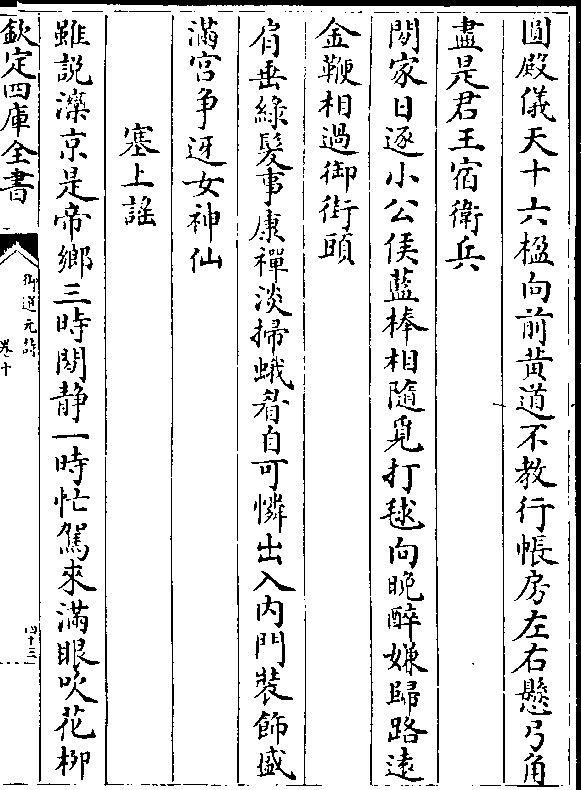 圓殿儀天十六楹向前黃道不教行帳房左右懸弓角
盡是君王宿衛兵
閱家日逐小公侯藍棒相隨覓打毬向晚醉嫌歸路遠
金鞭相過御街頭
肩垂綠髮事康禪淡掃蛾眉自可憐出入內門裝飾盛
滿宮爭迓女神仙
塞上謠
雖説灤京是帝鄉三時閱静一時忙駕來滿眼吹花柳
欽定四庫全書
御選元詩
卷十
四十三